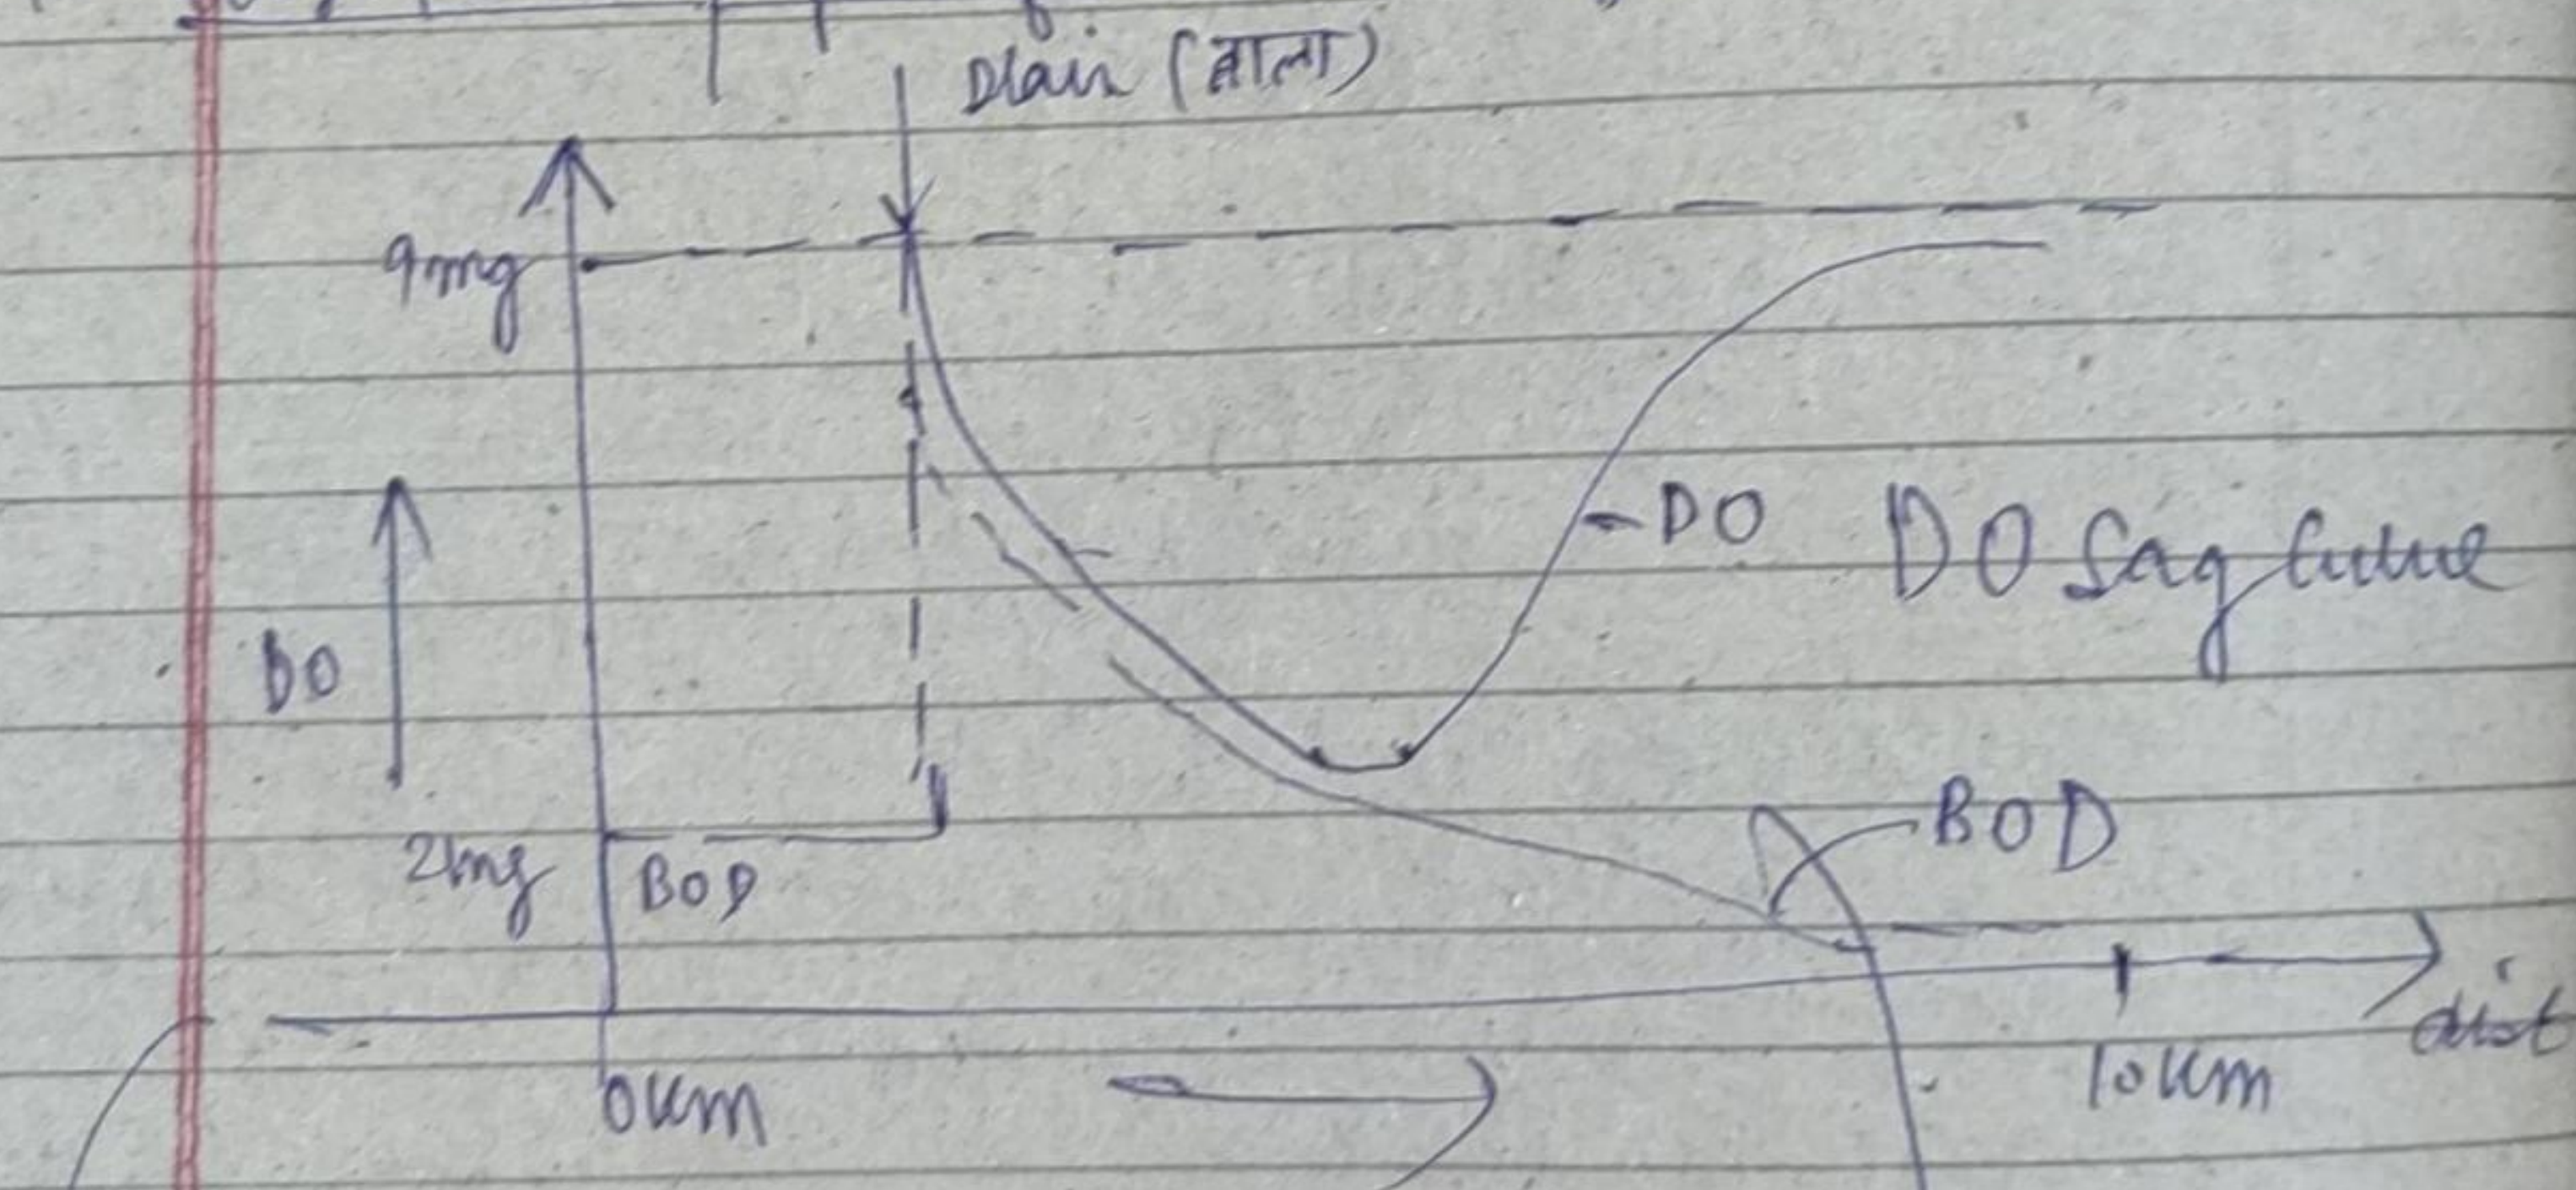 Drain (नाला)
9mg
DO
DO
DO Sag Curve
2mg
BOD
BOD
0km
10km
dist